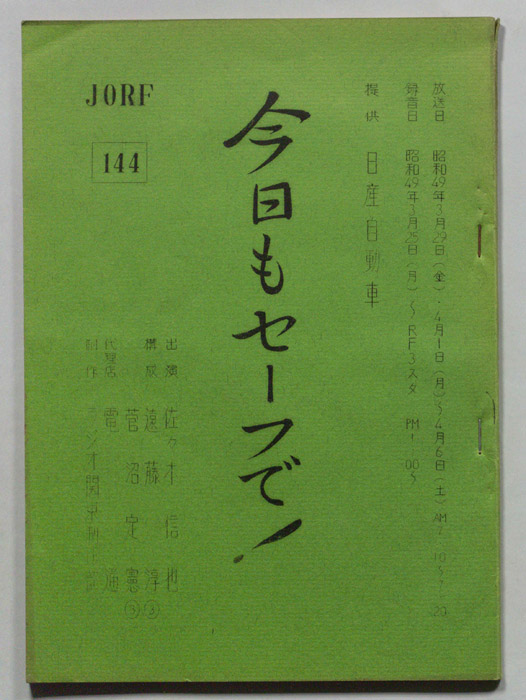 放送日 昭和49年3月29日(金)・4月1日(月)〜4月6日(土) AM7:10〜7:20
録音日 昭和49年3月25日(月)〜RF3スタ PM1:00〜
提供 日産自動車
今日もセーフで!
JORF
144
出演 佐々木信也
構成 遠藤淳③
菅沼定憲③
代理店 電通
制作